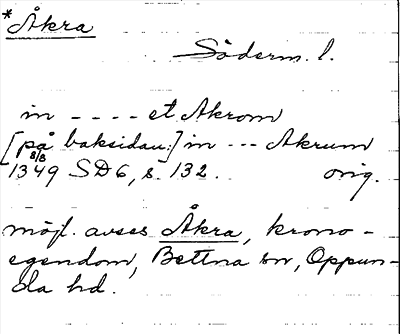 *Åkra
Söderm. l.
in - - - - et Akrom
[på baksidan:] in --- Akrum
8/3
1349 SD6, s. 132. orig.
möjl. avses Åkra, krono-
egendom, Bettna sn, Oppun-
da hd.